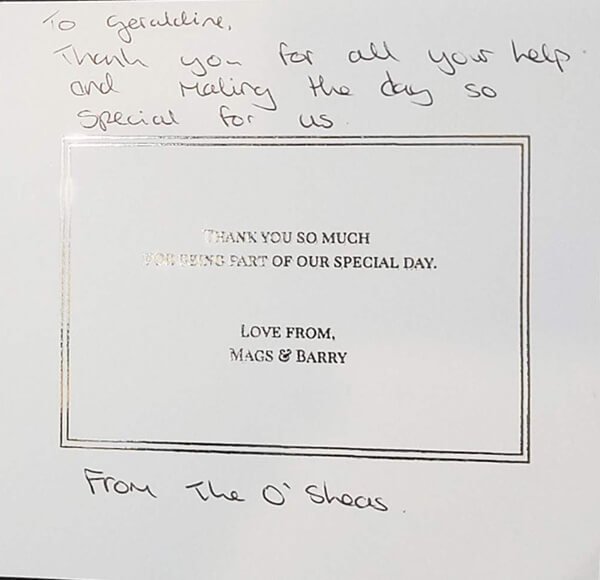 To Geraldine,
Thank you for all your help
and Making the day so
special for us.
THANK YOU SO MUCH
FOR BEING PART OF OUR SPECIAL DAY.
LOVE FROM,
MAGS & BARRY
From The O'Sheas.